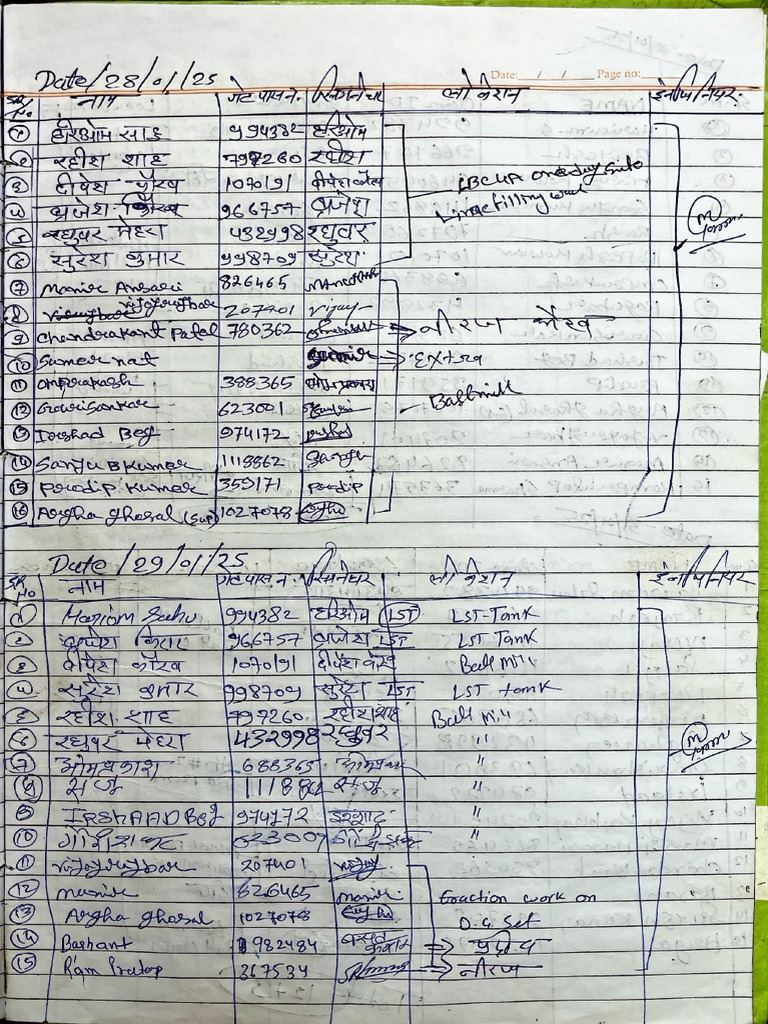 Date: / / Page no:
Date/28/01/25
SR No नाम गेट पास नं. सिग्नेचर लोकेशन इंजीनियर
① हरिओम साहू 994382 हरिओम
② रहीश शाह 797260 रहीश
③ दीपेश कौरव 1070191 दीपेश कौरव
④ ब्रजेश किरार 966757 ब्रजेश
⑤ रघुवर मेहरा 432998 रघुवर
⑥ सुरेश कुमार 998709 सुरेश
⑦ Manir Ansari 826465
⑧ vijayrajbar 207401 vijay
⑨ Chandrakant Patel 780362 नीरज कौरव
⑩ Sumer nat Extra
⑪ omprakash 388365 ओमप्रकाश
⑫ Gourisankar 623001 Ballmill
⑬ Irshad Beg 974172 irshad
⑭ Sanju B Kumar 1118862 Sanju
⑮ Pradip Kumar 359171 Pradip
⑯ Argha ghosal (Sup) 1027078 Argha
Date /29/01/25
SR No नाम गेट पास नं. सिग्नेचर लोकेशन इंजीनियर
① Hariom Sahu 994382 हरिओम LST LST-Tank
② ब्रजेश किरार 966757 ब्रजेश LST LST Tank
③ दीपेश कौरव 1070191 दीपेश कौरव Ball Mill
④ सुरेश कुमार 998709 सुरेश LST LST tank
⑤ रहीश शाह 797260 रहीश शाह Ball Mill
⑥ रघुवर मेहरा 432998 रघुवर "
⑦ ओमप्रकाश 688365 ओमप्रकाश "
⑧ संजू संजू "
⑨ IRSHAAD Beg 974172 इरशाद "
⑩ गौरीशंकर 623001 "
⑪ vijayrajbar 207401 vijay
⑫ manir 826465 manir Eraction work on
⑬ Argha ghosal 1027078 Argha D.G. Set
⑭ Bashant 982484 प्रदीप
⑮ Ram Pratap 367534 नीरज